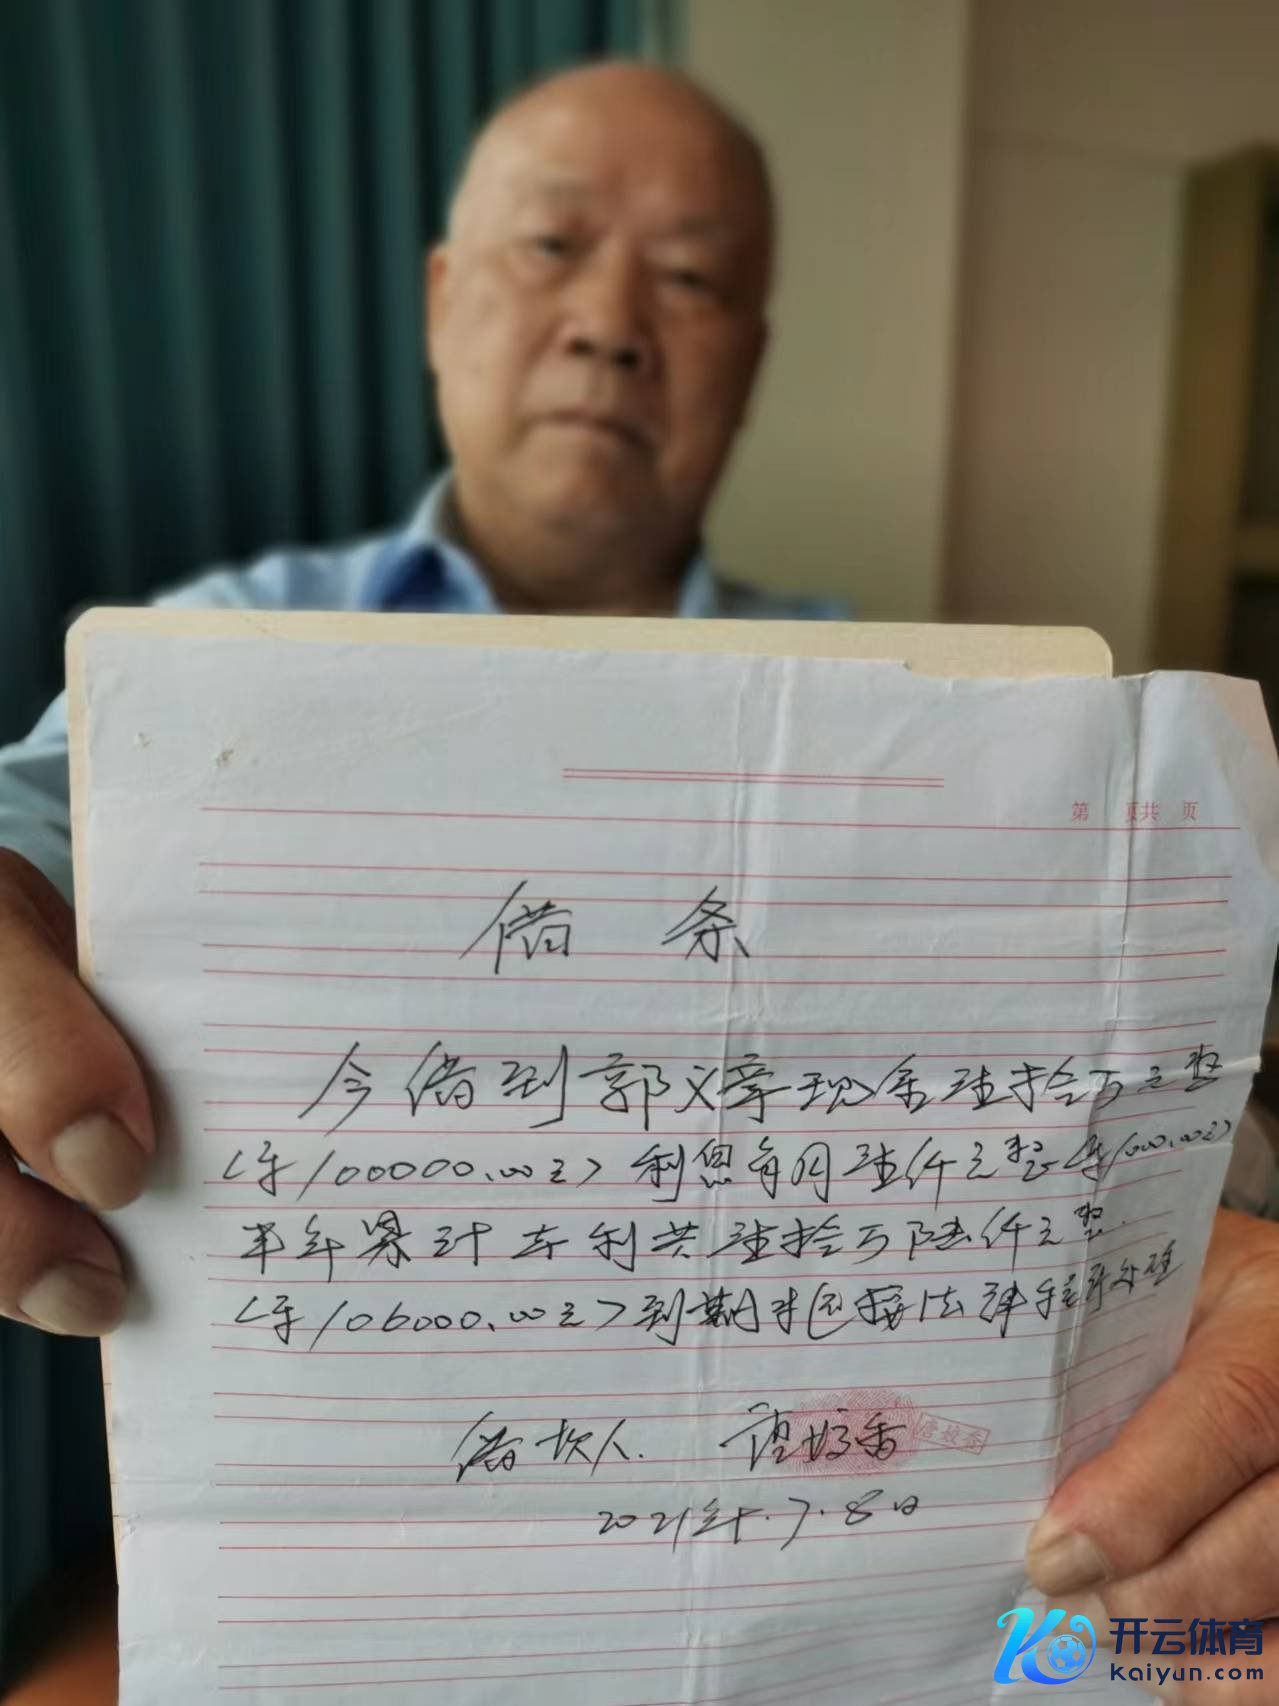 第 页共 页
借 条
今借到郭义章现金壹拾万元整
<¥100000.00元>利息每月壹仟元整<¥1000.00元>
半年累计本利共壹拾万陆仟元整
<¥106000.00元>到期未还按法律程序处理
借款人.
2021年.7.8日
开云体育
kaiyun.com